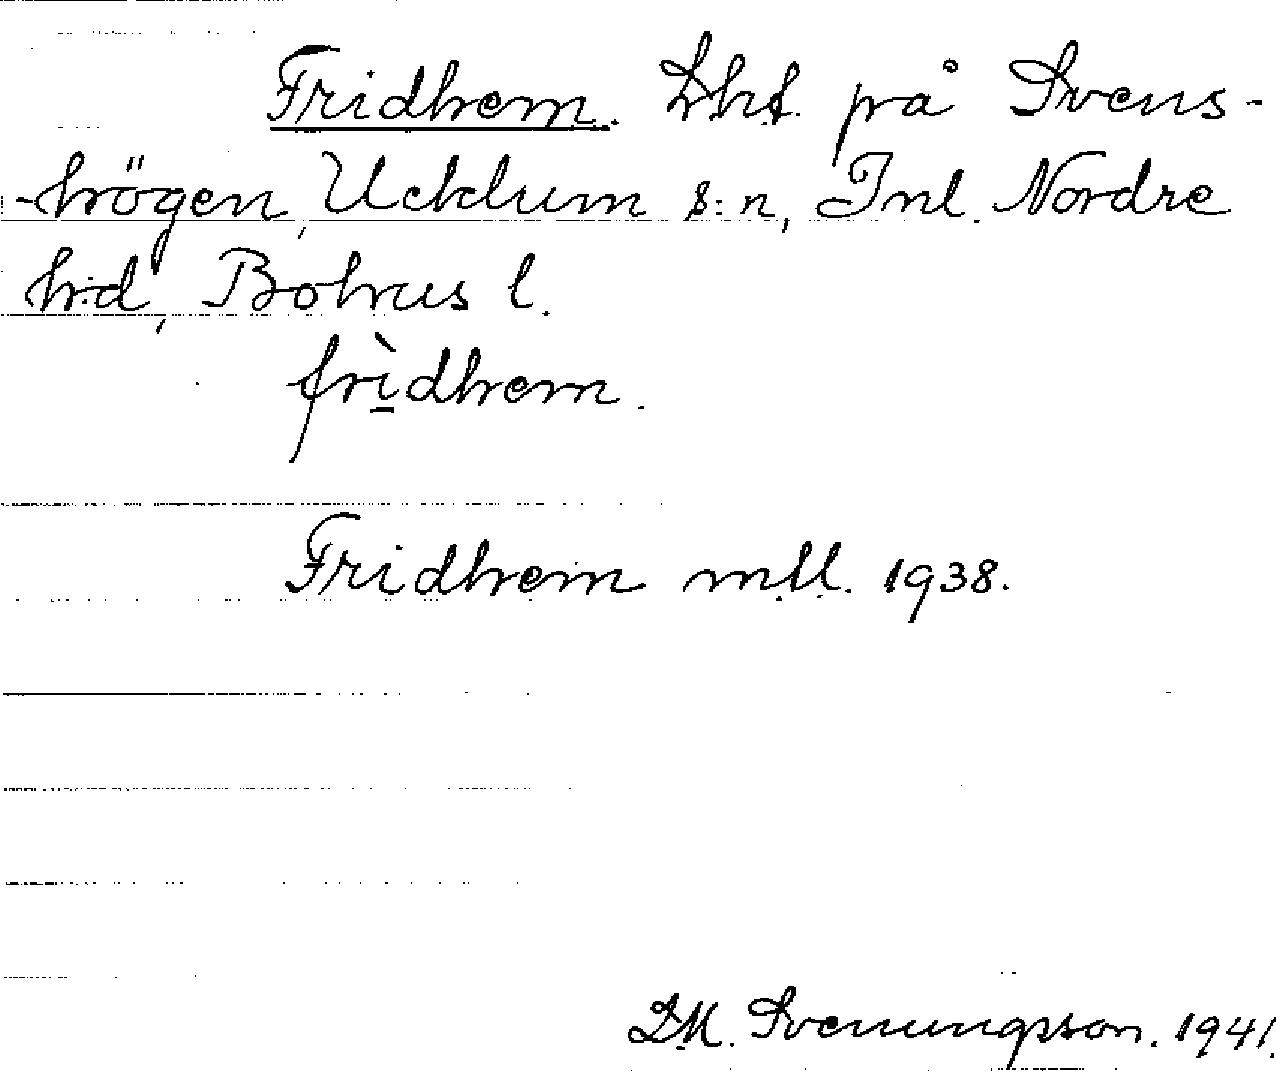 Fridhem. Lht. på Svens-
-högen, Ucklum s:n, Inl. Nordre
hd, Bohus l.
frìdhem.
Fridhem mll. 1938.
D.M. Svenungsson. 1941.